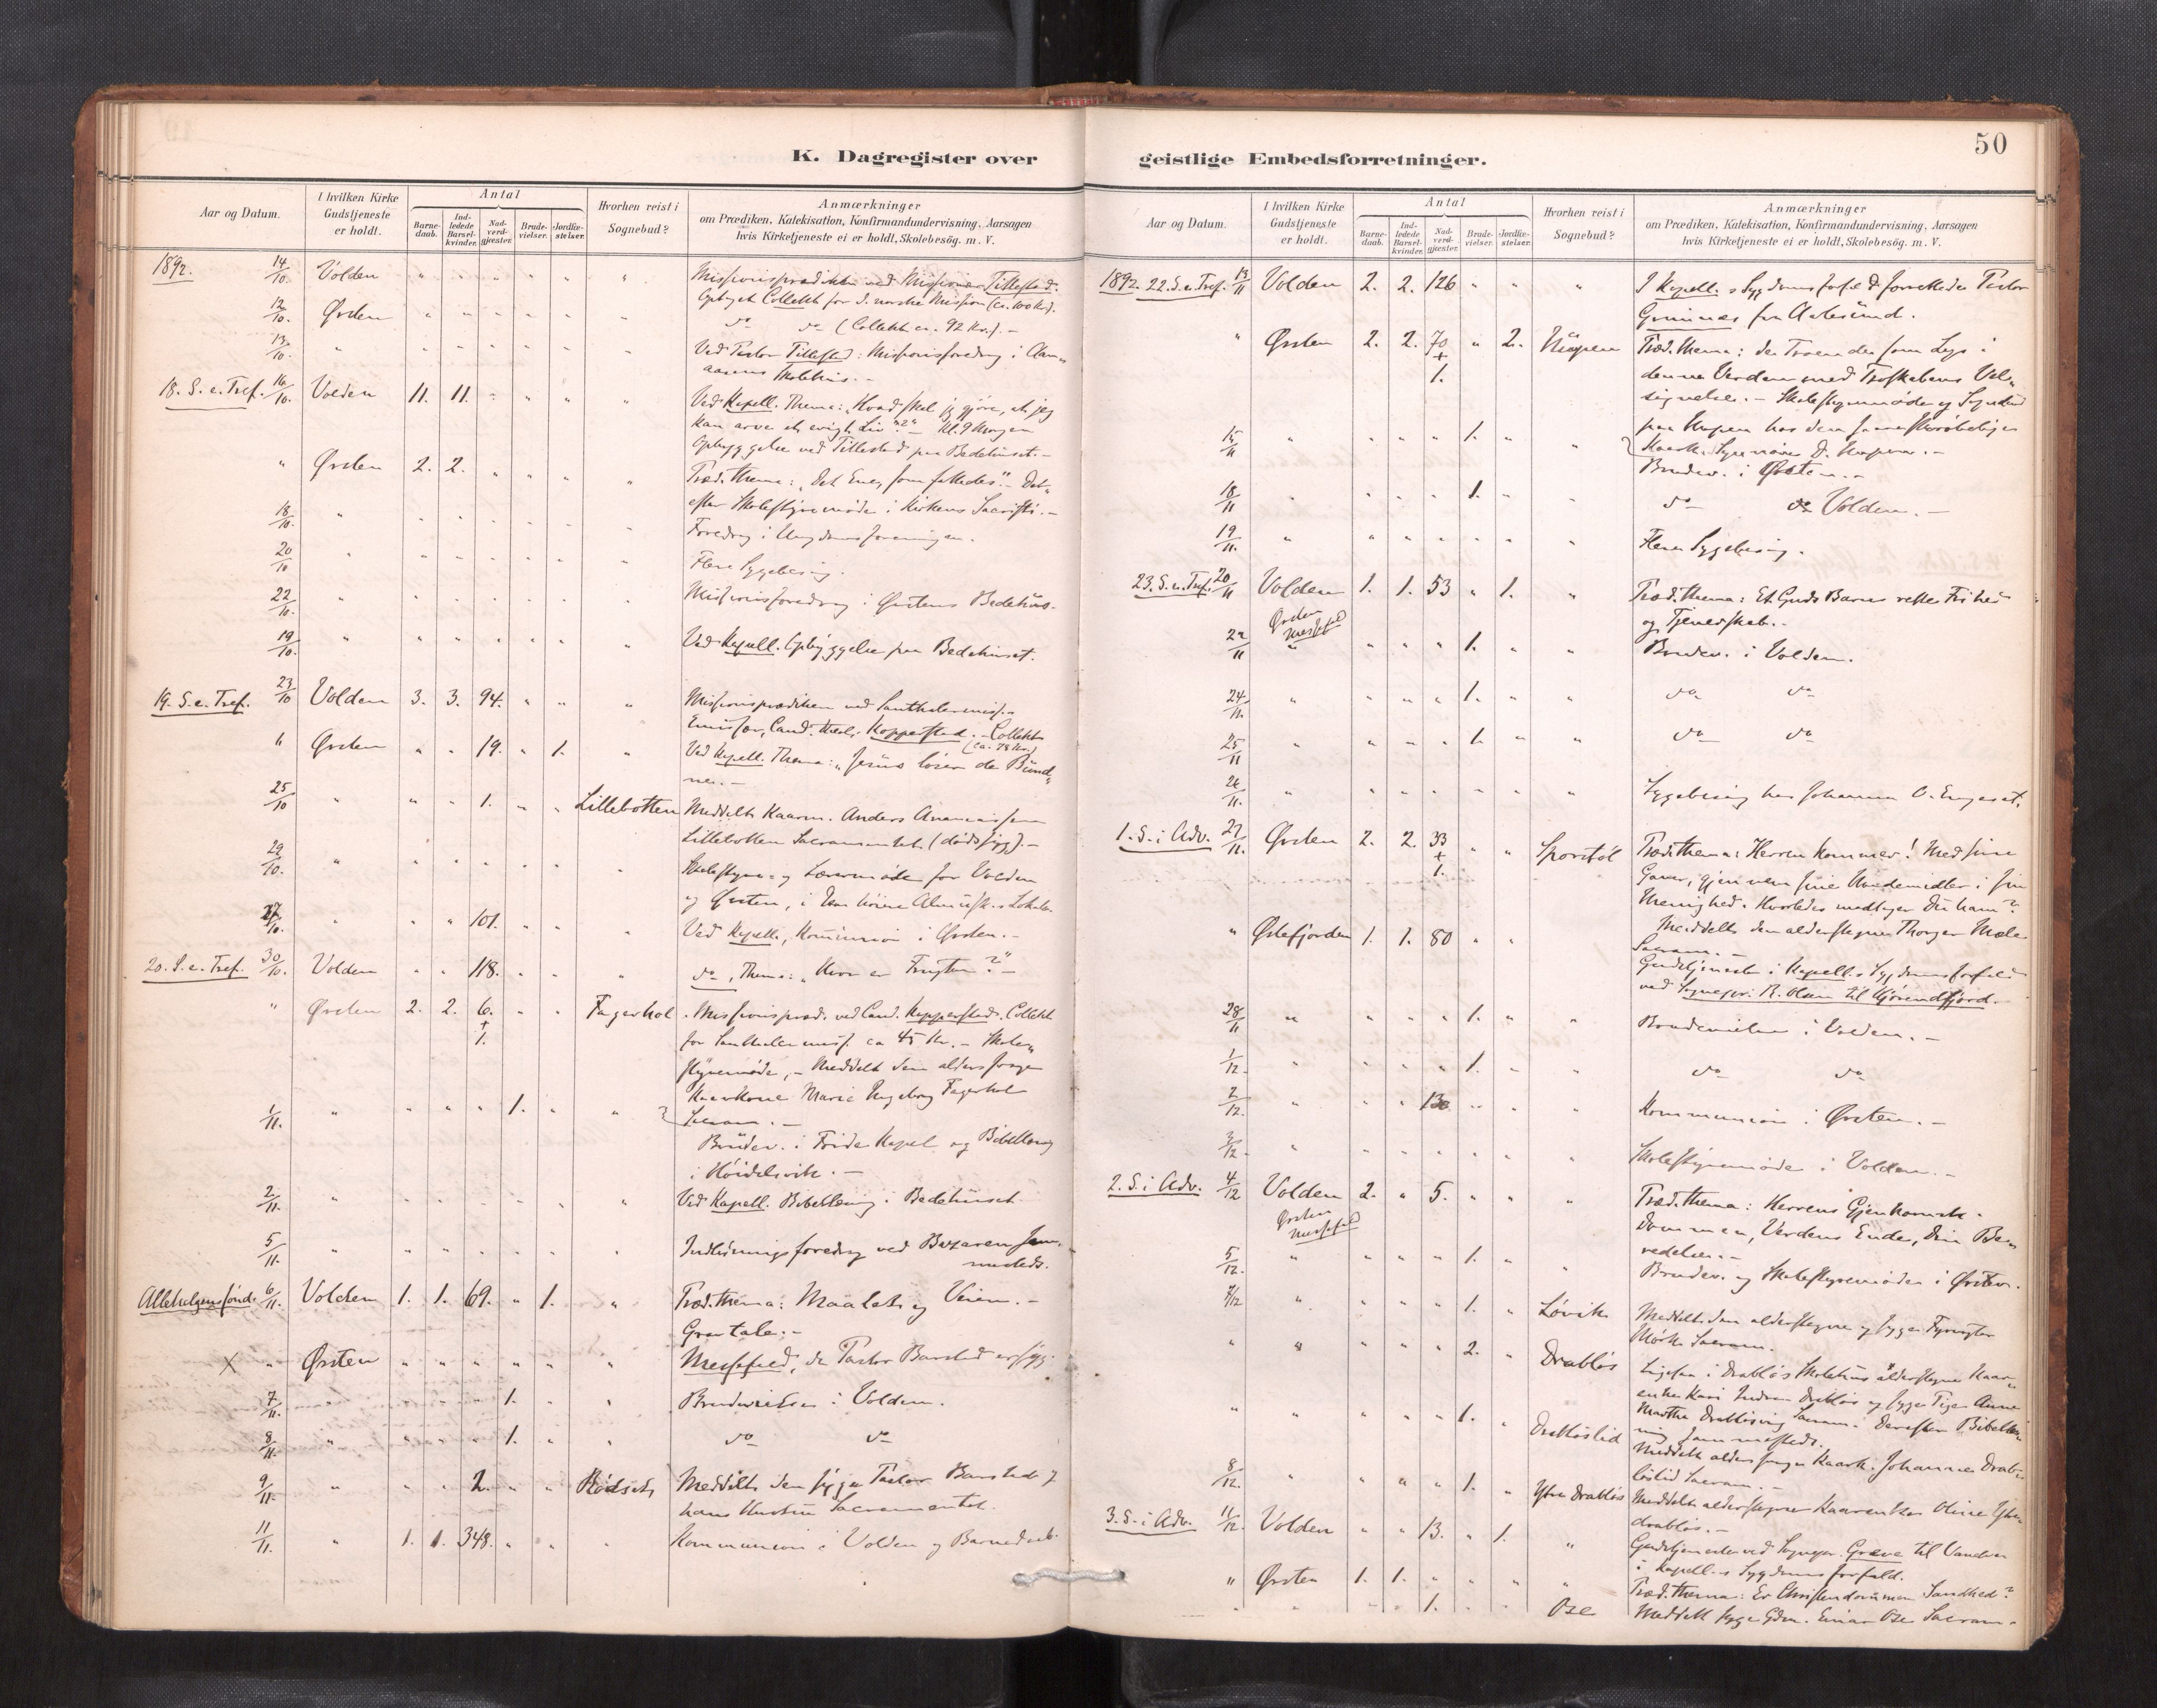 50
K. Dagregister over
geistlige Embedsforretninger.
Aar og Datum.
I hvilken Kirke Gudstjeneste er holdt.
Antal
Barne-daab.
Ind-ledede Barsel-kvinder.
Nad-verd-gjester.
Brude-vielser.
Jordfæ-stelser.
Hvorhen reist i Sognebud?
Anmærkninger
om Prædiken, Katekisation, Konfirmandundervisning, Aarsagen
hvis Kirketjeneste ei er holdt, Skolebesøg. m. V.
1892. 14/10. Volden " " " " " " Missionsprædiken ved Missionær Tillestad.
Collekt for d. norske Mission (ca. 100 Kr).
12/10. Ørsten " " " " " " do do (Collekt ca. 92 Kr.). -
13/10. " " " " " " Ved Pastor Tillestad: Missionsforedrag i
Skolehus. -
18. S. e. Tref. 16/10. Volden 11. 11. " " " " Ved Kapell. Thema: "Hvad skal jeg gjøre, at jeg
kan arve et evigt Liv"? - Kl. 9 Morgen
Opbyggelse ved Tillestad paa Bedehuset. -
" Ørsten 2. 2. " " " " Præd. thema: "Det Ene, som fattedes". - Der-
efter Skolestyremøde i Kirkens Sacristi. -
18/10. " " " " " " Foredrag i Ungdomsforeningen.
20/10 " " " " " " Flere Sygebesøg.
22/10. " " " " " " Missionsforedrag i Ørstens Bedehus.
19/10. " " " " " " Ved Kapell. Opbyggelse paa Bedehuset.
19. S. e. Tref. 23/10 Volden 3. 3. 94. " " " Missionsprædiken ved Santhalermiss.
Emissær, Cand. theol. Koppestad. - Collekt
(ca. 78 Kr.)
" Ørsten " " 19. " 1. " Ved Kapell. Thema: "Jesus løser de Bund-
ne". -
25/10 " " " 1. " " Lillebotten Meddelt Kaarm. Anders
Lillebotten Sacramentet. (dødssyg). -
29/10. " " " " " " Skolestyre- og Lærermøde for Volden
og Ørsten, i Lokale.
27/10. " " " 101. " " Ved Kapell., Kommunion i Ørsten. -
20. S. e. Tref. 30/10. Volden " " 118. " " " do, Thema: "Hvor er Frugten"? -
" Ørsten 2. 2. 6. + 1. " " Fagerhol. Missionspræd. ved Cand. Koppestad. Collekt
for Santhalermiss. ca 45 Kr. - Skole-
styremøde, - Meddelt den alderssvage
Kaarkone Marie Ingeborg Fagerhol
Sacram. -
1/11. " " " " 1. " " Brudev. i Kapel og Bibellæsning
i Høidalsvik. -
2/11. " " " " " " Ved Kapell. Bibellæsning i Bedehuset
5/11. " " " " " " Indledningsforedrag ved Bazaren sam-
mesteds.
Allehelgenssønd. 6/11. Volden 1. 1. 69. " 1. " Præd. thema: Maalet og Veien. -
Gravtale. -
X " Ørsten " " " " " " Messefald, da Pastor Barsted er syg.
7/11. " " " 1. " " Brudevielse i Volden.
8/11. " " " " 1. " " do do
9/11. " " " 2. " " Rødset Meddelt den syge Pastor Barsted og
hans Hustru Sacramentet.
11/11. " 1. 1. 348. " " " Kommunion i Volden og Barnedaab.
Aar og Datum.
I hvilken Kirke Gudstjeneste er holdt.
Antal
Barne-daab.
Ind-ledede Barsel-kvinder.
Nad-verd-gjester.
Brude-vielser.
Jordfæ-stelser.
Hvorhen reist i Sognebud?
Anmærkninger
om Prædiken, Katekisation, Konfirmandundervisning, Aarsagen
hvis Kirketjeneste ei er holdt, Skolebesøg. m. V.
1892. 22. S. e. Tref. 13/11 Volden 2. 2. 126 " " " I Kapell.s Sygdomsforfald forrettedes Pastor
fra Aalesund.
" Ørsten 2. 2. 70 + 1. " 2. Præd. thema: De Troende som Lys i
denne Verden med Vel-
signelse. - Skolestyremøde og Sognebud
paa hos den
Kaark. -
15/11 " " " " 1. " " Brudev. i Ørsten. -
18/11 " " " " 1. " " do do Volden. -
19/11. " " " " " " " Flere Sygebesøg.
23. S. e. Tref. 20/11 Volden 1. 1. 53 " 1. " Præd. thema: Et Guds Barns rette Frihed
og Tjenerskab. -
Ørsten Messefald
22/11 " " " " 1. " " Brudev. i Volden.
24/11. " " " " 1. " " do do
25/11 " " " " 1. " " do do
26/11. " " " " " " " Sygebesøg hos Johanna O. Engeset.
1. S. i Adv. 27/11. Ørsten 2. 2. 33 + 1. " " Sporstøl Præd. thema: Herren kommer! Med sine
Gaver, gjennem sine Naademidler i sin
Menighed. Hvorledes modtager Du ham?
Meddelt den alderstegne Mæle
Sacram. -
" Østefjorden 1. 1. 80 " " Gudstjeneste i Kapell.s Sygdomsforfald
ved Sognepr. R. Olsen til Hjørendfjord.
28/11 " " " " 1. " " Brudevielse i Volden. -
1/12. " " " " 1. " " do do
2/12. " " " 130 " " " Kommunion i Ørsten. -
3/12. " " " " " " " Skolestyremøde i Volden. -
2. S. i Adv. 4/12 Volden 2. " 5. " " " Præd. thema: Herrens Gjenkomst.
Dommen, Verdens Ende, Din Be-
redelse. -
Ørsten Messefald
5/12. " " " " 1. " " Brudev. og Skolestyremøde i Ørsten.
7/12 " " " " 1. " Løvik Meddelt den alderstegne og syge
Mørk Sacram.
" " " " " 2. " Drabløs Ligesaa i Drabløs Skolehus alderstegne Kaar-
enke Kari Drabløs og syge Pige Anne
Martha Drabløs Sacram. Derefter Bibellæs-
ning sammesteds.
" " " " " 1. " Drabløslid Meddelt alderssvage Kaark. Johanne Drab-
løslid Sacram. -
8/12. " " " " 1. " Ytre Drabløs Meddelt alderstegne Kaarenke Oline Ytre-
drabløs. -
3. S. i Adv. 11/12. Volden " " 13. " 1. " Gudstjeneste ved Sognepr. Græve til Vanelven
i Kapell.s Sygdomsforfald.
" Ørsten 1. 1. " " " " Præd. thema: Er Christendommen Sandhed?
" " " " 1. " " Ose Meddelt syge Gdm. Einar Ose Sacram.